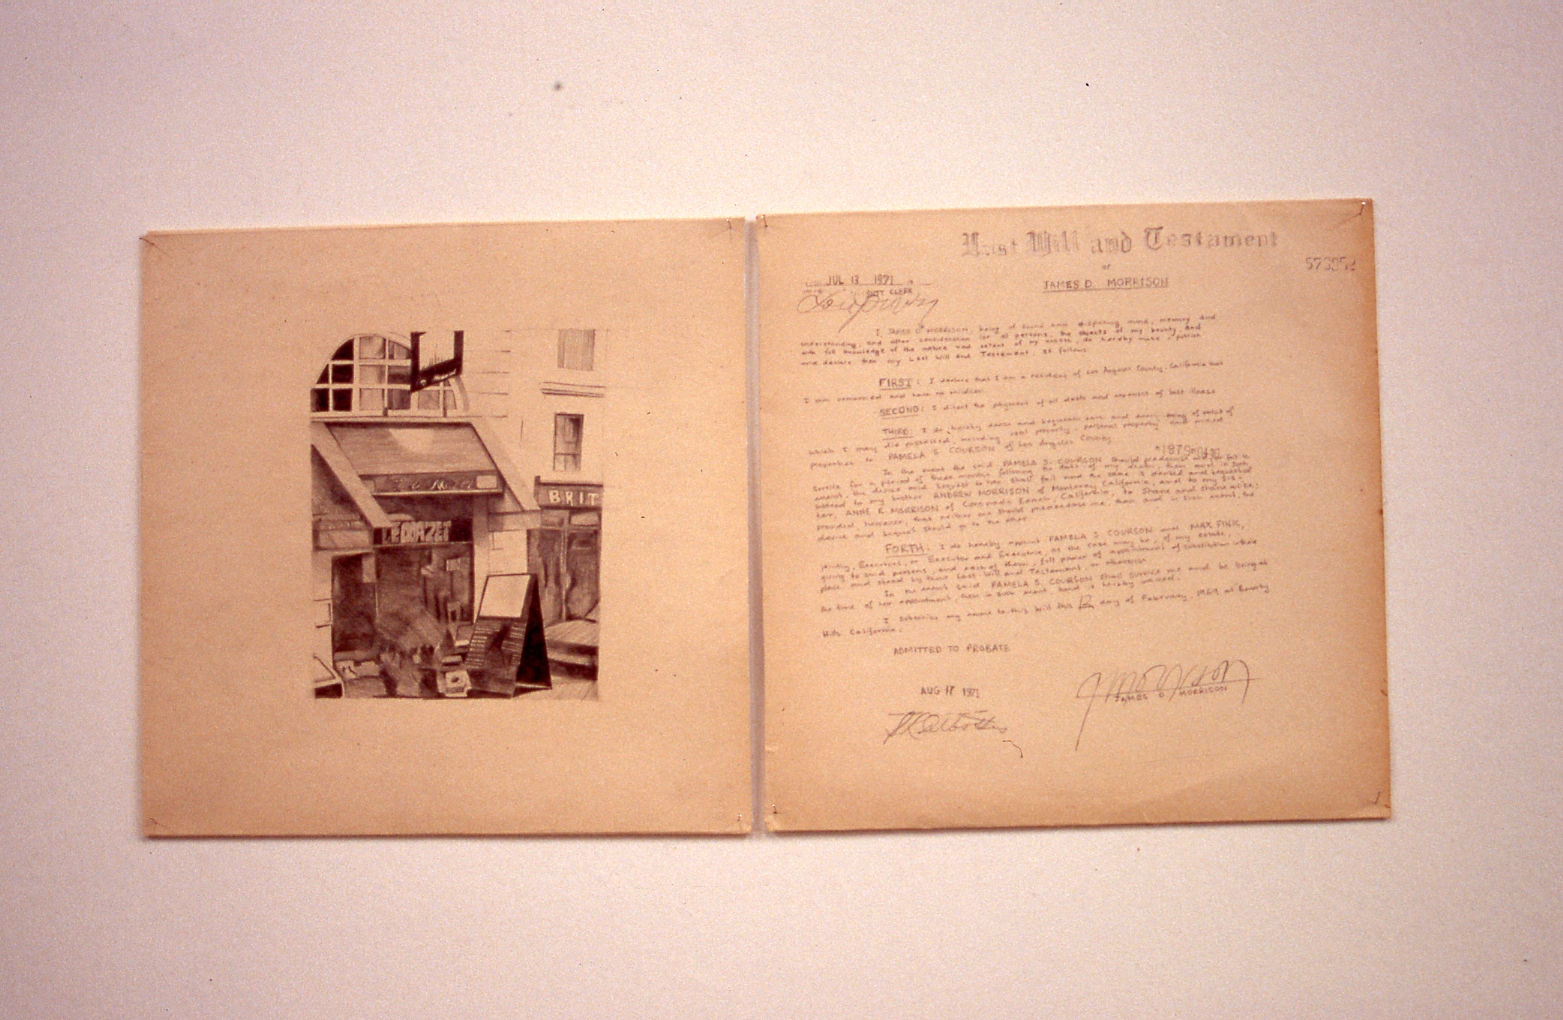 BRIT
Last Will and Testament
of
JAMES D. MORRISON
575352
JUL 13 1971
CLERK
I, JAMES D. MORRISON, being of sound and disposing mind, memory and
understanding, and after consideration for all persons, the objects of my bounty and
with full knowledge of the nature and extent of my assets, do hereby make, publish
and declare this my Last Will and Testament, as follows:
FIRST: I declare that I am a resident of Los Angeles County, California and
I am unmarried and have no children.
SECOND: I direct the payment of all debts and expenses of last illness
THIRD: I do hereby devise and bequeath
which I may die possessed, including real property, personal property and mixed
properties to PAMELA S. COURSON of Los Angeles County.
In the event the said PAMELA S. COURSON should predecease
for a period of three months following the date of my death, then and in such
event, the devise and bequest to her shall fail and the same is devised and bequeathed
instead to my brother ANDREW MORRISON of Monterey, California, and to my sis-
ter, ANNE R. MORRISON of Coronado Beach, California, to share and share alike;
provided, however, that
devise and bequest should go to the other.
FORTH: I do hereby appoint PAMELA S. COURSON and MAX FINK,
jointly, Executors, or Executor and Executrix, as the case may be, of my estate,
giving to said persons, and each of them, full power of appointment of
place and stead by their Last Will and Testament, or otherwise.
In the event said PAMELA S. COURSON shall survive me and be living at
the time of her appointment, then in such event, bond is hereby waived.
I subscribe my name to this Will this 12 day of February, 1969, at Beverly
Hills, California.
ADMITTED TO PROBATE
AUG 17 1971
JAMES D. MORRISON